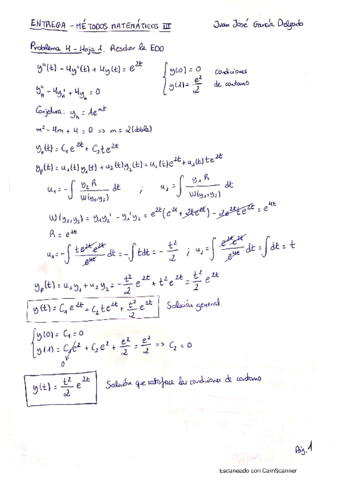 ENTREGA - MÉTODOS MATEMÁTICOS III Juan José García Delgado
Problema 4 - Hoja 1. Resolver la EDO
y''(t) - 4y'(t) + 4y(t) = e^{2t} { y(0) = 0 condiciones
y(1) = e²/2 de contorno
y_h'' - 4y_h' + 4y_h = 0
Conjetura: y_h = Ae^{mt}
m² - 4m + 4 = 0 => m = 2 (doble)
y_h(t) = C₁e^{2t} + C₂te^{2t}
y_p(t) = u₁(t)y₁(t) + u₂(t)y₂(t) = u₁(t)e^{2t} + u₂(t)te^{2t}
u₁ = -∫ y₂R/W(y₁,y₂) dt ; u₂ = ∫ y₁R/W(y₁,y₂) dt
W(y₁,y₂) = y₁y₂' - y₁'y₂ = e^{2t}(e^{2t} + 2te^{2t}) - 2e^{2t}te^{2t} = e^{4t}
R = e^{2t}
u₁ = -∫ te^{2t}e^{2t}/e^{4t} dt = -∫t dt = -t²/2 ; u₂ = ∫ e^{2t}e^{2t}/e^{4t} dt = ∫dt = t
y_p(t) = u₁y₁ + u₂y₂ = -t²/2 e^{2t} + t²e^{2t} = t²/2 e^{2t}
y(t) = C₁e^{2t} + C₂te^{2t} + t²/2 e^{2t} Solución general
{ y(0) = C₁ = 0
y(1) = C₁e² + C₂e² + e²/2 = e²/2 => C₂ = 0
y(t) = t²/2 e^{2t} Solución que satisface las condiciones de contorno
Pág. 1
Escaneado con CamScanner